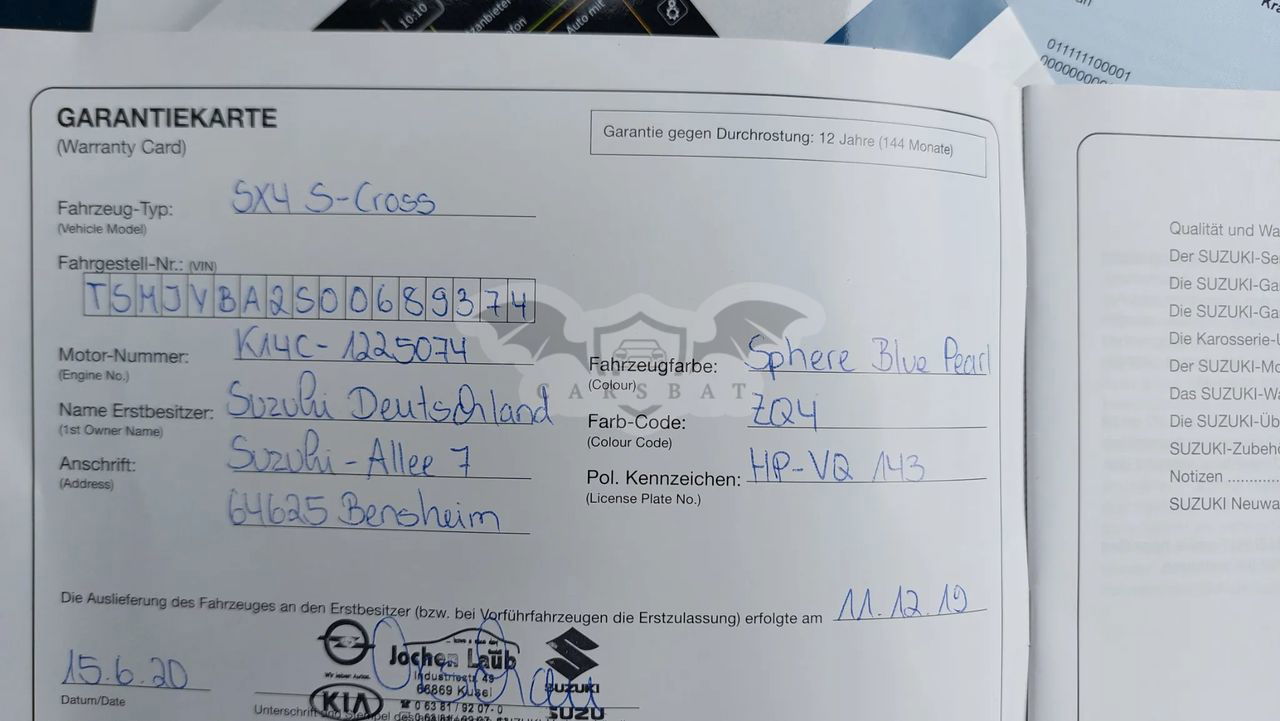 10:10
Auto mit
011111100001
GARANTIEKARTE
(Warranty Card)
Garantie gegen Durchrostung: 12 Jahre (144 Monate)
Fahrzeug-Typ: SX4 S-Cross
(Vehicle Model)
Fahrgestell-Nr.: (VIN)
TSMJYBA2S00689374
Motor-Nummer: K14C-1225074
(Engine No.)
Fahrzeugfarbe: Sphere Blue Pearl
(Colour)
CARSBAT
Name Erstbesitzer: Suzuki Deutschland
(1st Owner Name)
Farb-Code: ZQ4
(Colour Code)
Anschrift: Suzuki-Allee 7
(Address)
Pol. Kennzeichen: HP-VQ 143
(License Plate No.)
64625 Bensheim
Die Auslieferung des Fahrzeuges an den Erstbesitzer (bzw. bei Vorführfahrzeugen die Erstzulassung) erfolgte am 11.12.19
15.6.20
Datum/Date
Jochen Laub
Industriestr. 49
66869 Kusel
KIA
SUZUKI
Qualität und Wa
Der SUZUKI-Se
Die SUZUKI-Ga
Die SUZUKI-Ga
Die Karosserie-
Der SUZUKI-Mo
Das SUZUKI-Wa
Die SUZUKI-Üb
SUZUKI-Zubeh
Notizen
SUZUKI Neuwa